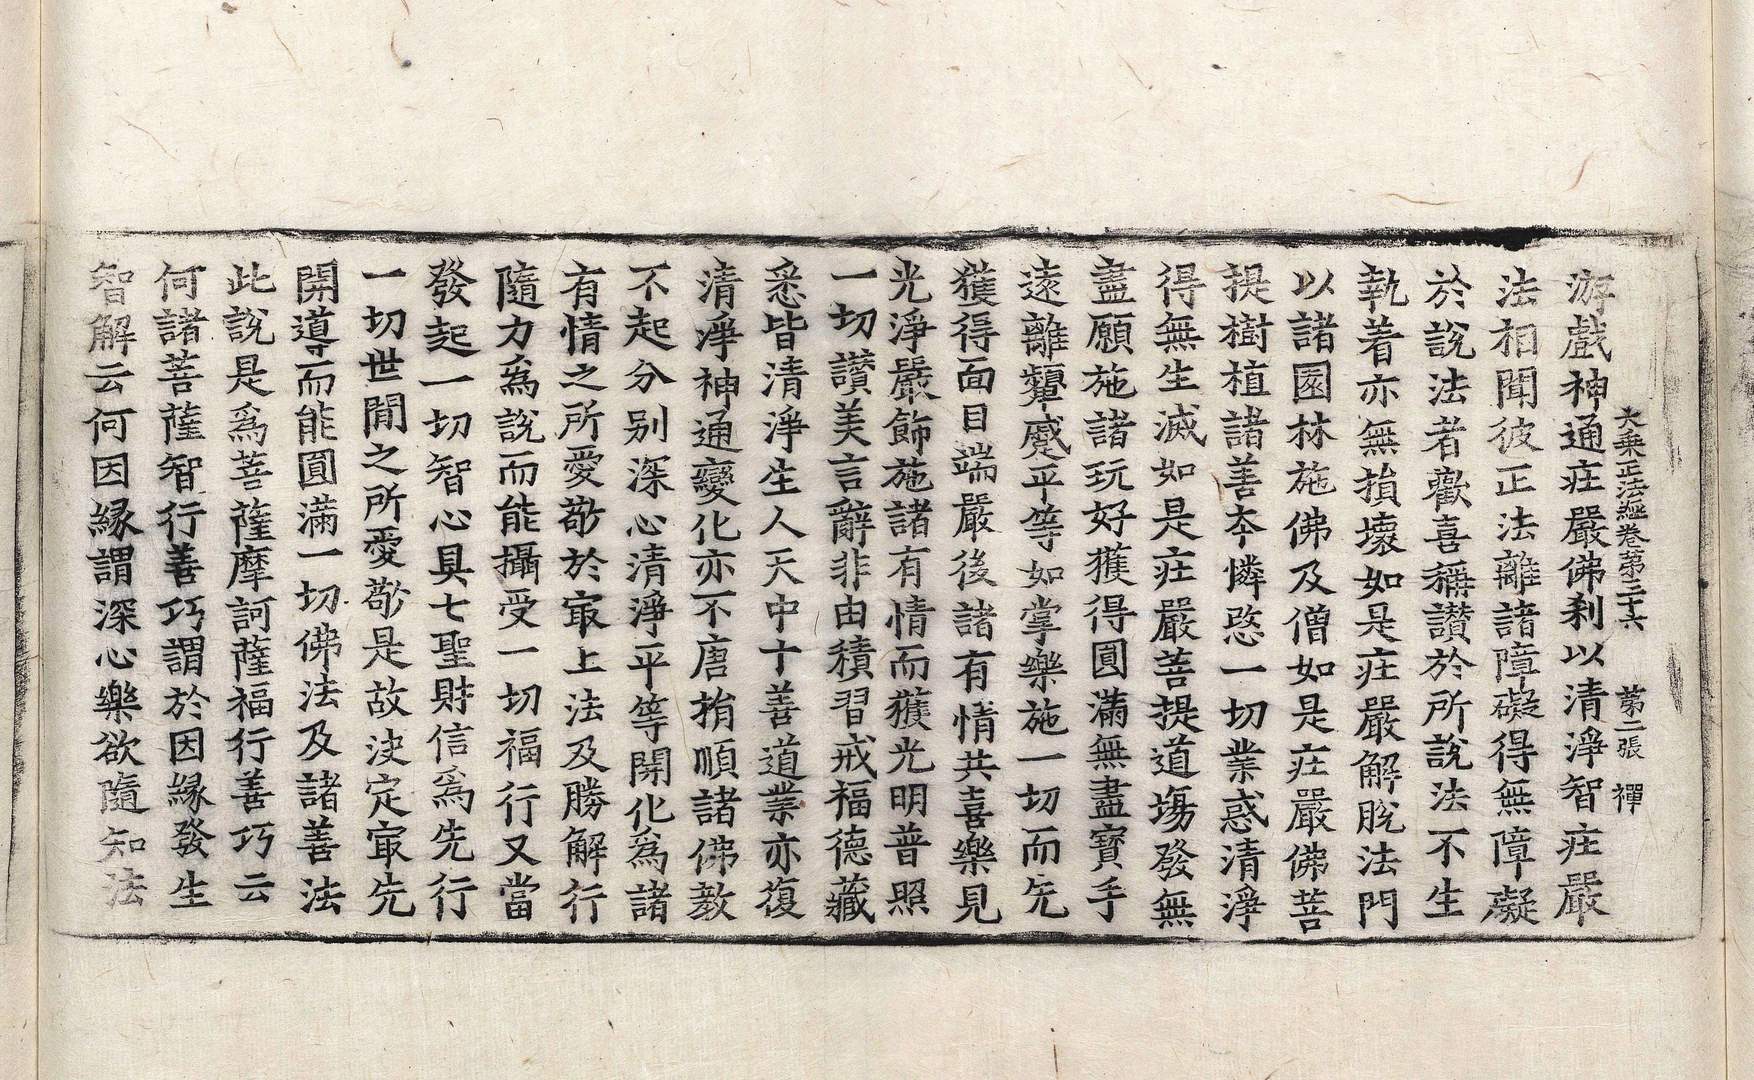 大乘正法經卷第三十六　第二張　禪
游戲神通庄嚴佛刹以清淨智庄嚴
法相聞彼正法離諸障礙得無障礙
於說法者歡喜稱讃於所說法不生
執着亦無損壞如是庄嚴解脫法門
以諸園林施佛及僧如是庄嚴佛菩
提樹植諸善夲憐愍一切業惑清淨
得無生滅如是庄嚴菩提道場發無
盡願施諸玩好獲得圓滿無盡寶手
遠離顰蹙平等如掌樂施一切而先
獲得面目端嚴後諸有情共喜樂見
光淨嚴飾施諸有情而獲光明普照
一切讃美言辭非由積習戒福德藏
悉皆清淨生人天中十善道業亦復
清淨神通變化亦不唐捐順諸佛教
不起分别深心清淨平等開化爲諸
有情之所愛敬於㝡上法及勝解行
隨力爲說而能攝受一切福行又當
發起一切智心具七聖財信爲先行
一切世間之所愛敬是故決定㝡先
開導而能圓滿一切佛法及諸善法
此說是爲菩薩摩訶薩福行善巧云
何諸菩薩智行善巧謂於因緣發生
智解云何因緣謂深心樂欲隨知法